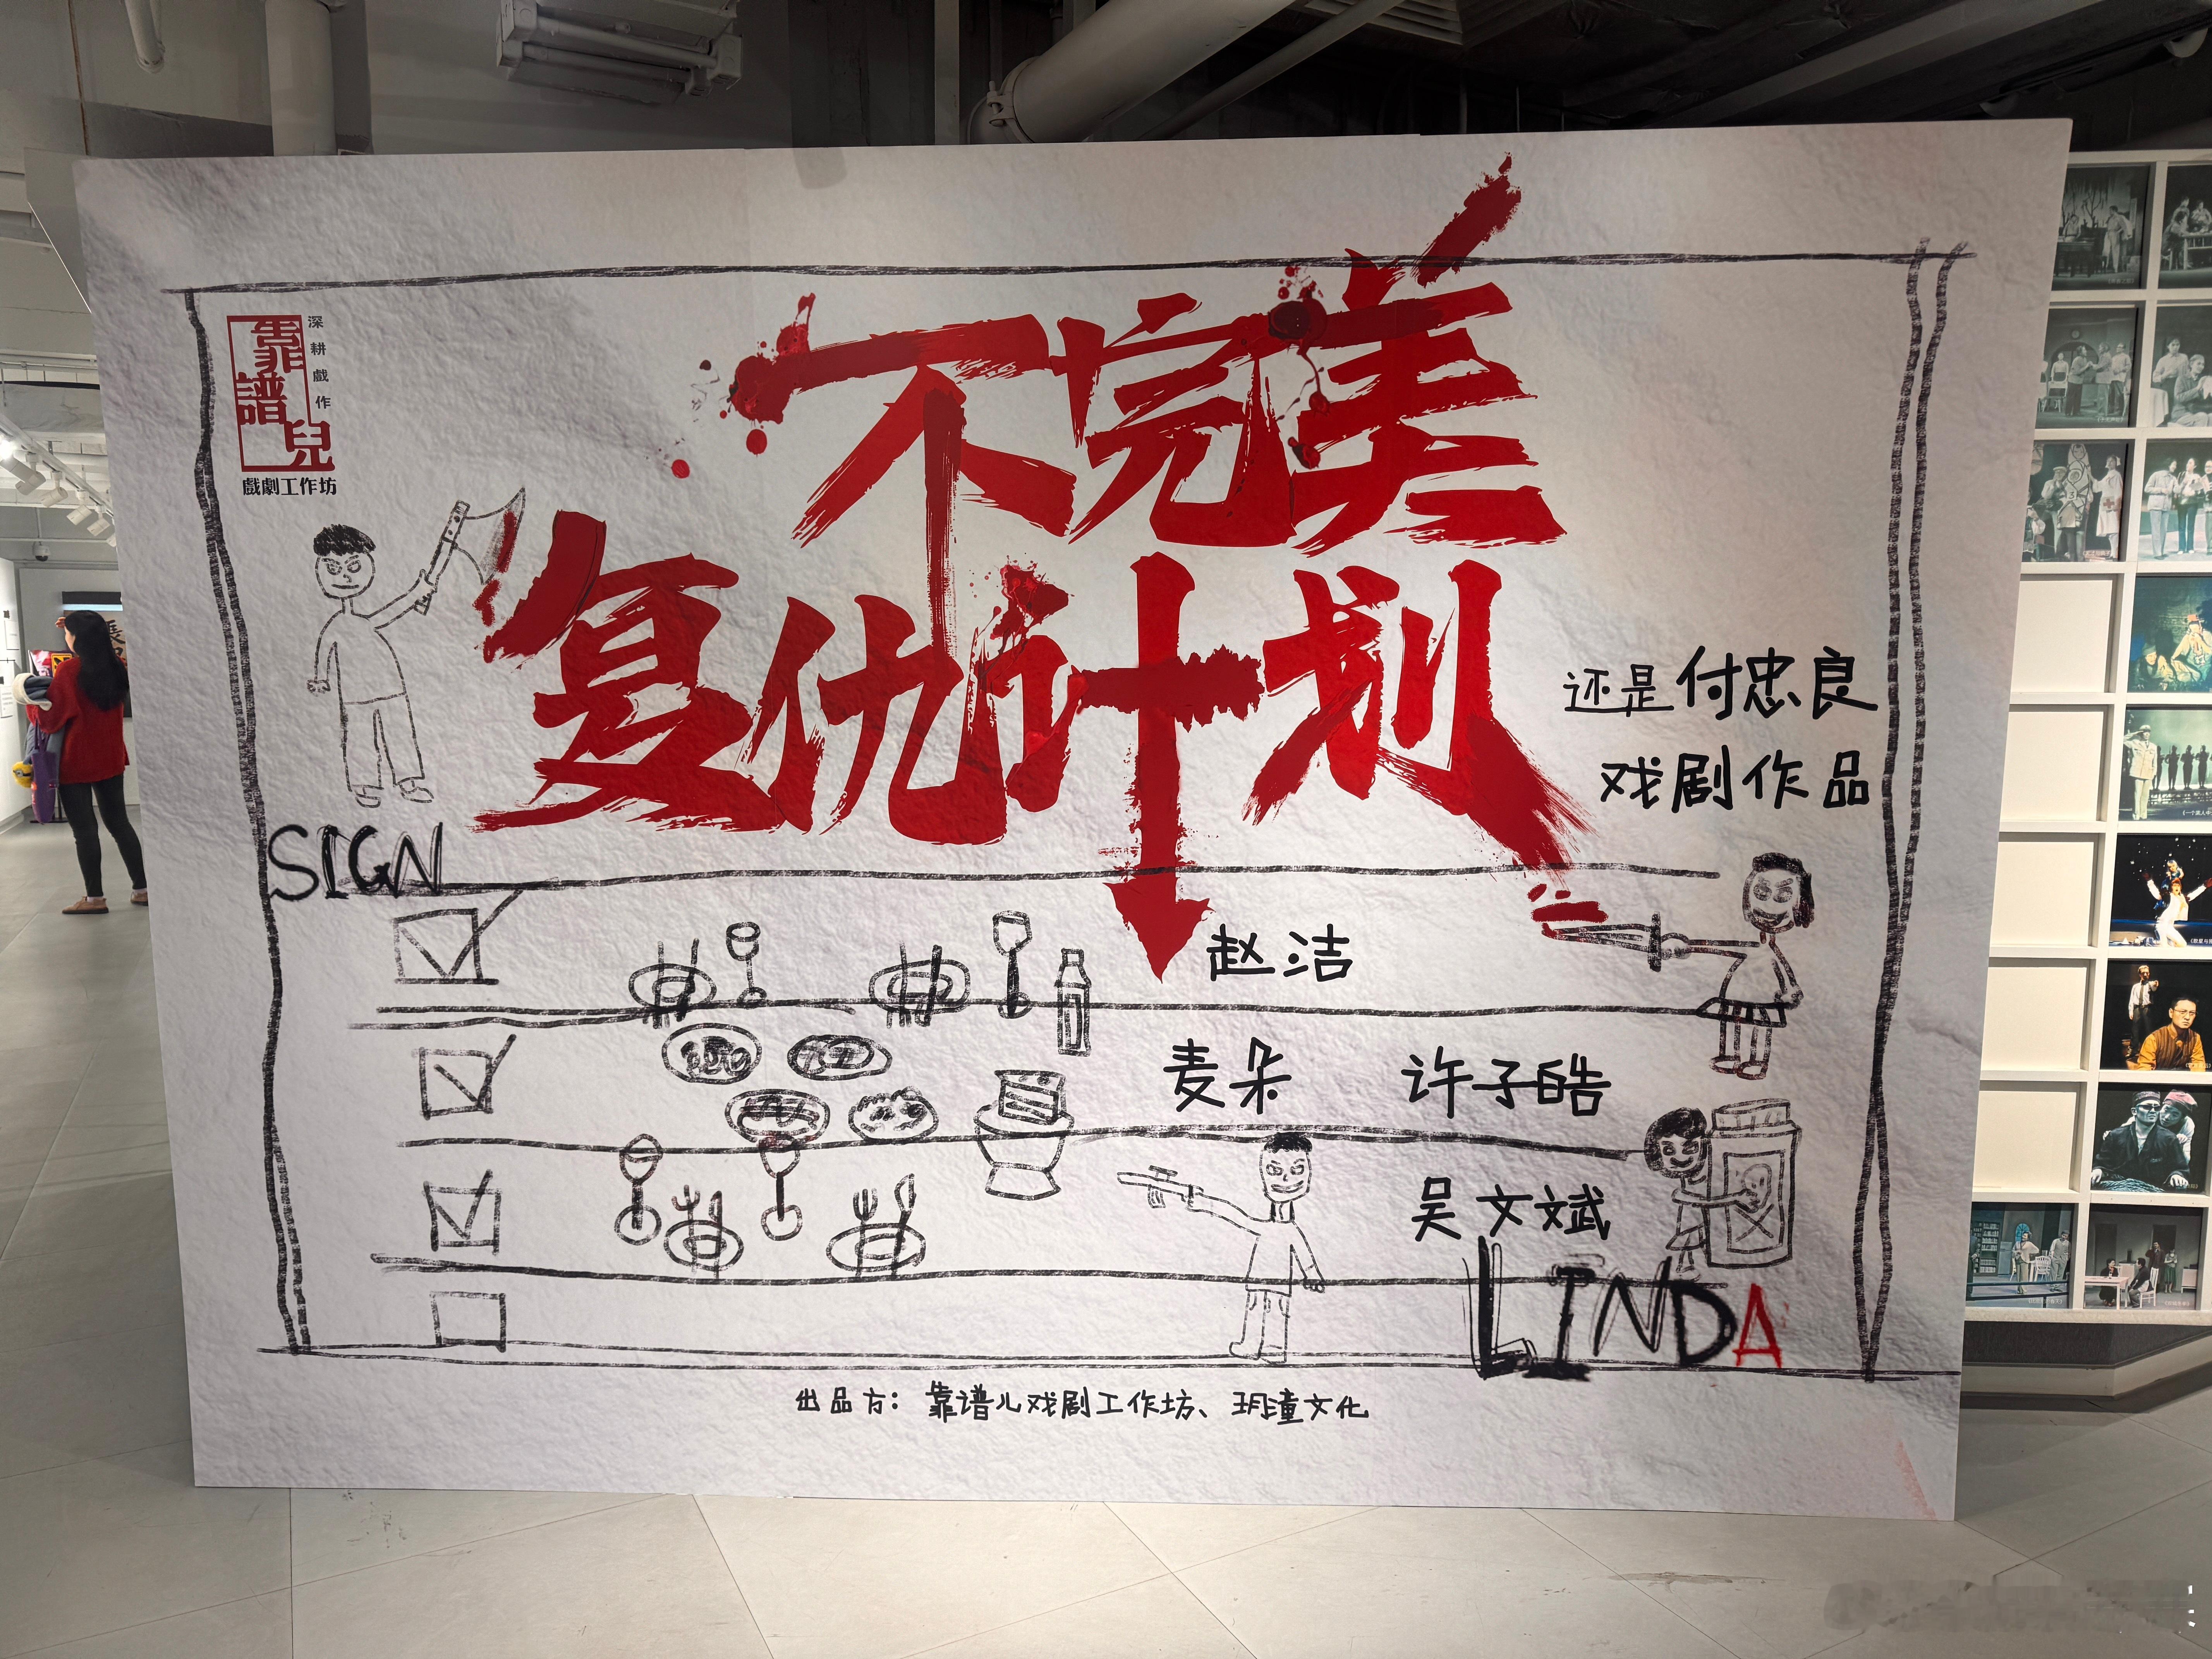 靠譜兒
深耕戲作
戲劇工作坊
不完美
复仇计划
还是付忠良
戏剧作品
SIGN
赵洁
麦朵 许子皓
吴文斌
LINDA
出品方：靠谱儿戏剧工作坊、玥潼文化